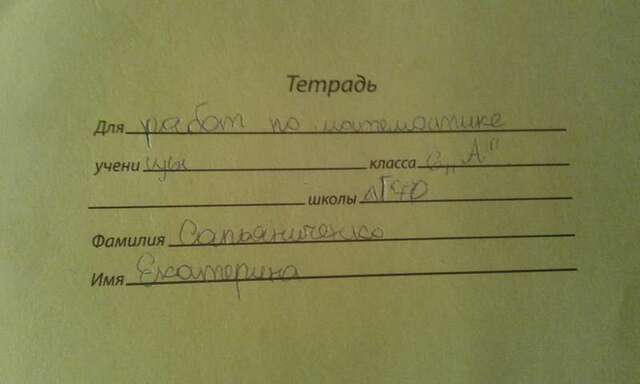 Тетрадь
Для работ по математике
ученицы класса 6 „А"
школы №70
Фамилия Сапьяниченко
Имя Екатерина